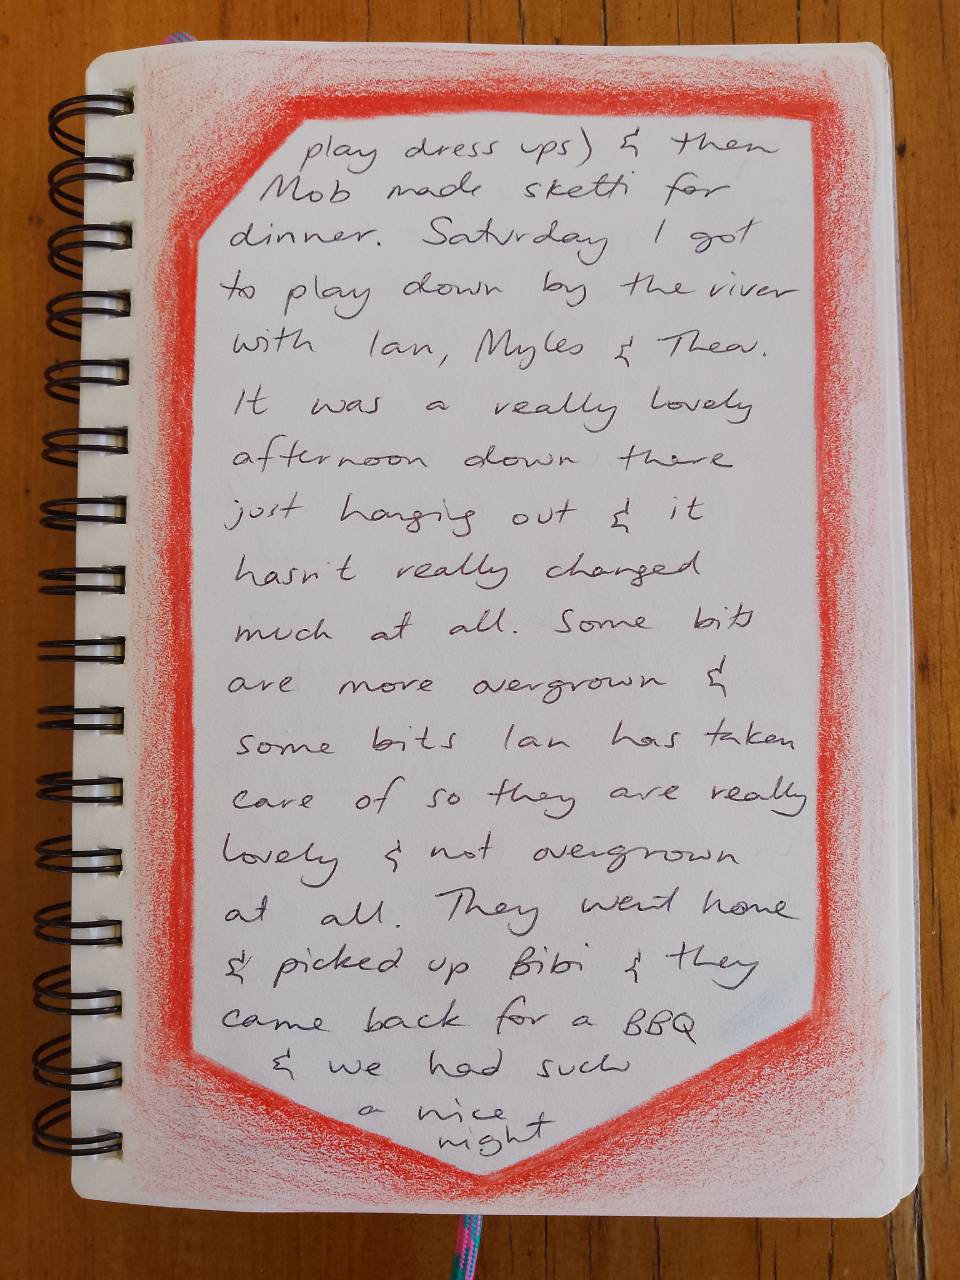 play dress ups) & then
Mob made sketti for
dinner. Saturday I got
to play down by the river
with Ian, Myles & Thea.
It was a really lovely
afternoon down there
just hanging out & it
hasn't really changed
much at all. Some bits
are more overgrown &
some bits Ian has taken
care of so they are really
lovely & not overgrown
at all. They went home
& picked up Bibi & they
came back for a BBQ
& we had such
a nice
night